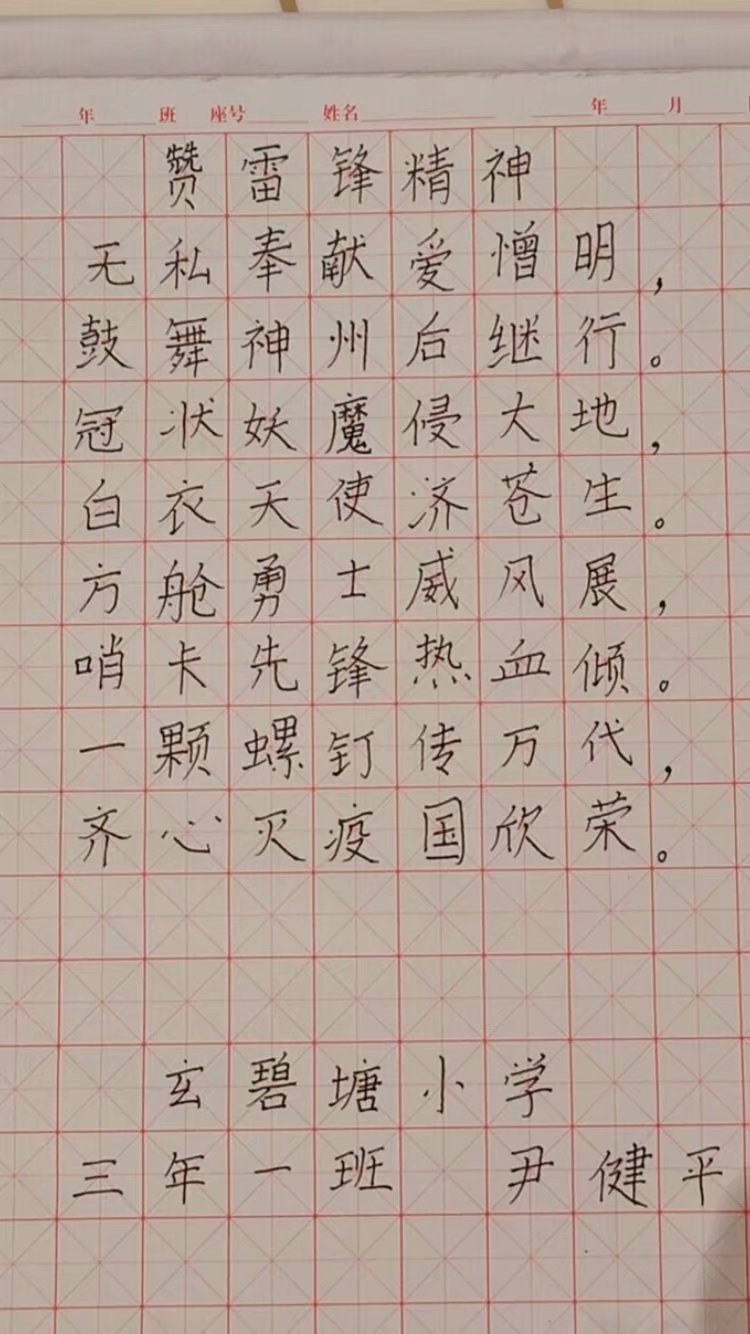 年 班 座号 姓名 年 月
赞雷锋精神
无私奉献爱憎明，
鼓舞神州后继行。
冠状妖魔侵大地，
白衣天使济苍生。
方舱勇士威风展，
哨卡先锋热血倾。
一颗螺钉传万代，
齐心灭疫国欣荣。
玄碧塘小学
三年一班 尹健平